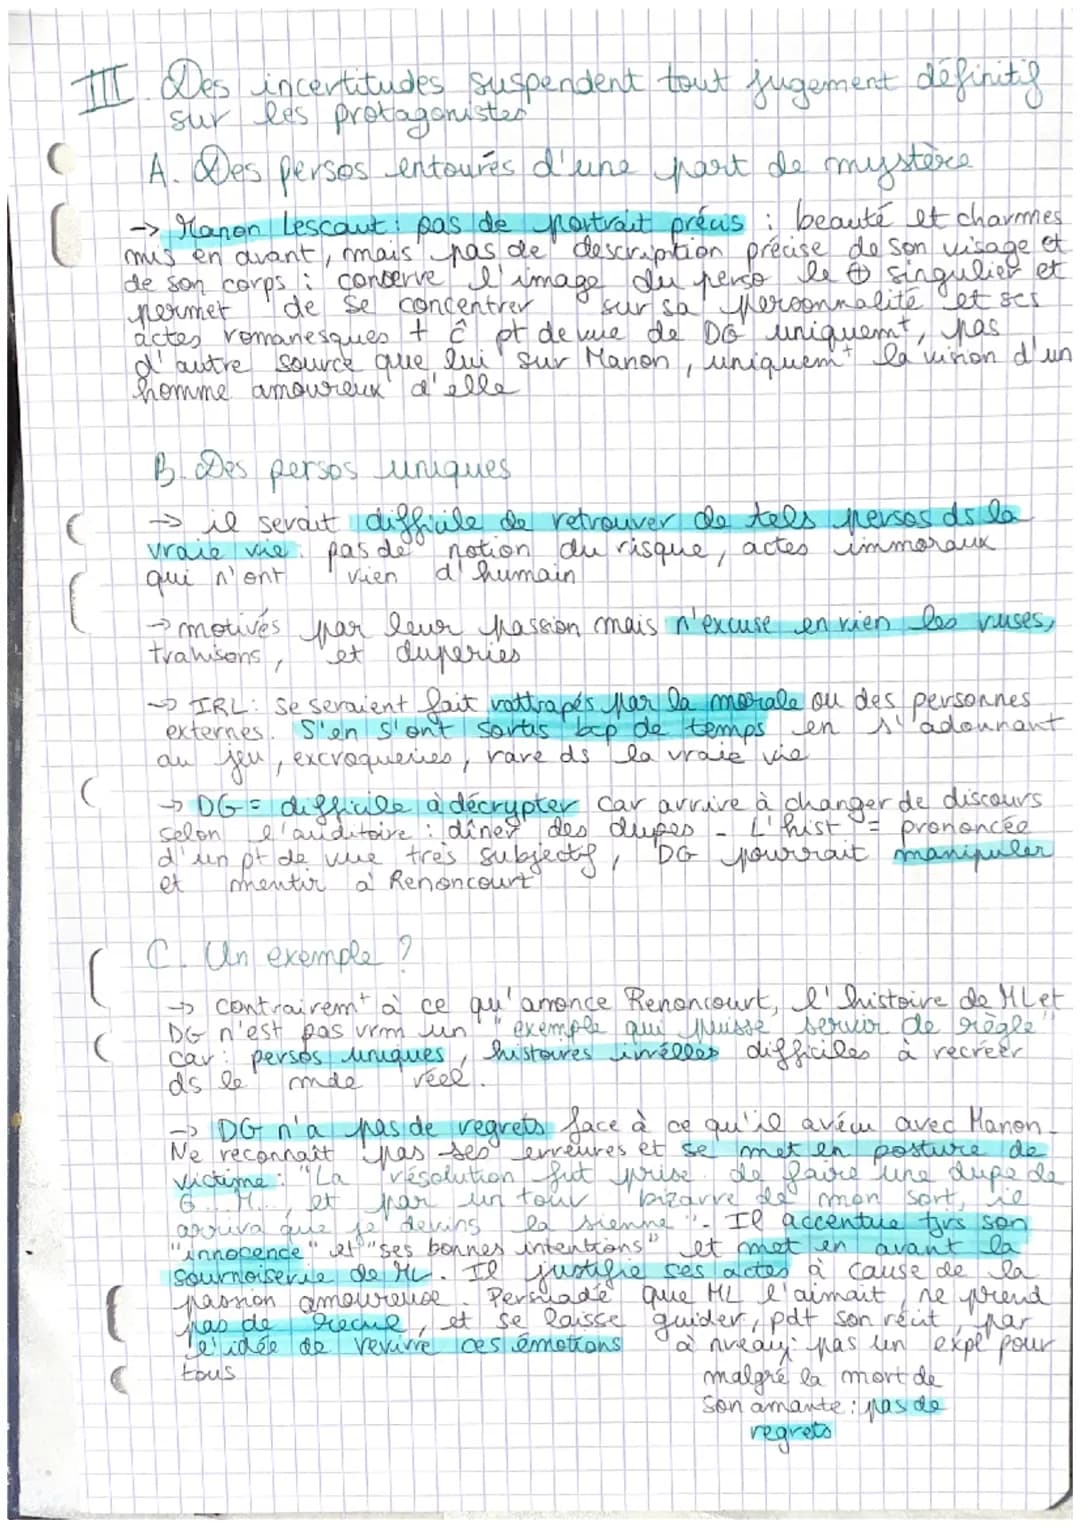 III. Des incertitudes suspendent tout jugement définitif
sur les protagonistes
A. Des persos entourés d'une part de mystère
-> Manon Lescaut : pas de portrait précis : beauté et charmes
mis en avant, mais pas de description précise de son visage et
de son corps : conserve l'image du perso le ⊕ singulier et
permet de se concentrer sur sa personnalité et ses
actes romanesques + ĉ pt de vue de DG uniquemt, pas
d'autre source que lui sur Manon, uniquemt la vision d'un
homme amoureux d'elle
B. Des persos uniques
-> il serait difficile de retrouver de tels persos ds la
vraie vie : pas de notion du risque, actes immoraux
qui n'ont rien d'humain
-> motivés par leur passion mais n'excuse en rien les ruses,
trahisons, et duperies
-> IRL : se seraient fait rattrapés par la morale ou des personnes
externes. S'en s'ont sortis bcp de temps en s'adonnant
au jeu, excroqueries, rare ds la vraie vie
-> DG = difficile à décrypter car arrive à changer de discours
selon l'auditoire : dîner des dupes - L'hist = prononcée
d'un pt de vue très subjectif, DG pourrait manipuler
et mentir à Renoncourt
C. Un exemple ?
-> contrairemt à ce qu'annonce Renoncourt, l'histoire de ML et
DG n'est pas vrmt un "exemple qui puisse servir de règle"
car : persos uniques, histoires irréelles difficiles à recréer
ds le mde réel.
-> DG n'a pas de regrets face à ce qu'il avécu avec Manon.
Ne reconnaît pas ses erreures et se met en posture de
victime : "La résolution fut prise de faire une dupe de
G... M..., et par un tour bizarre de mon sort, il
arriva que je devins la sienne". Il accentue tjrs son
"innocence" et "ses bonnes intentions" et met en avant la
sournoiserie de ML. Il justifie ses actes à cause de la
passion amoureuse. Persuadé que ML l'aimait, ne prend
pas de recul, et se laisse guider, pdt son récit, par
l'idée de revivre ces émotions à nveau : pas un expl pour
tous
malgré la mort de
son amante : pas de
regrets